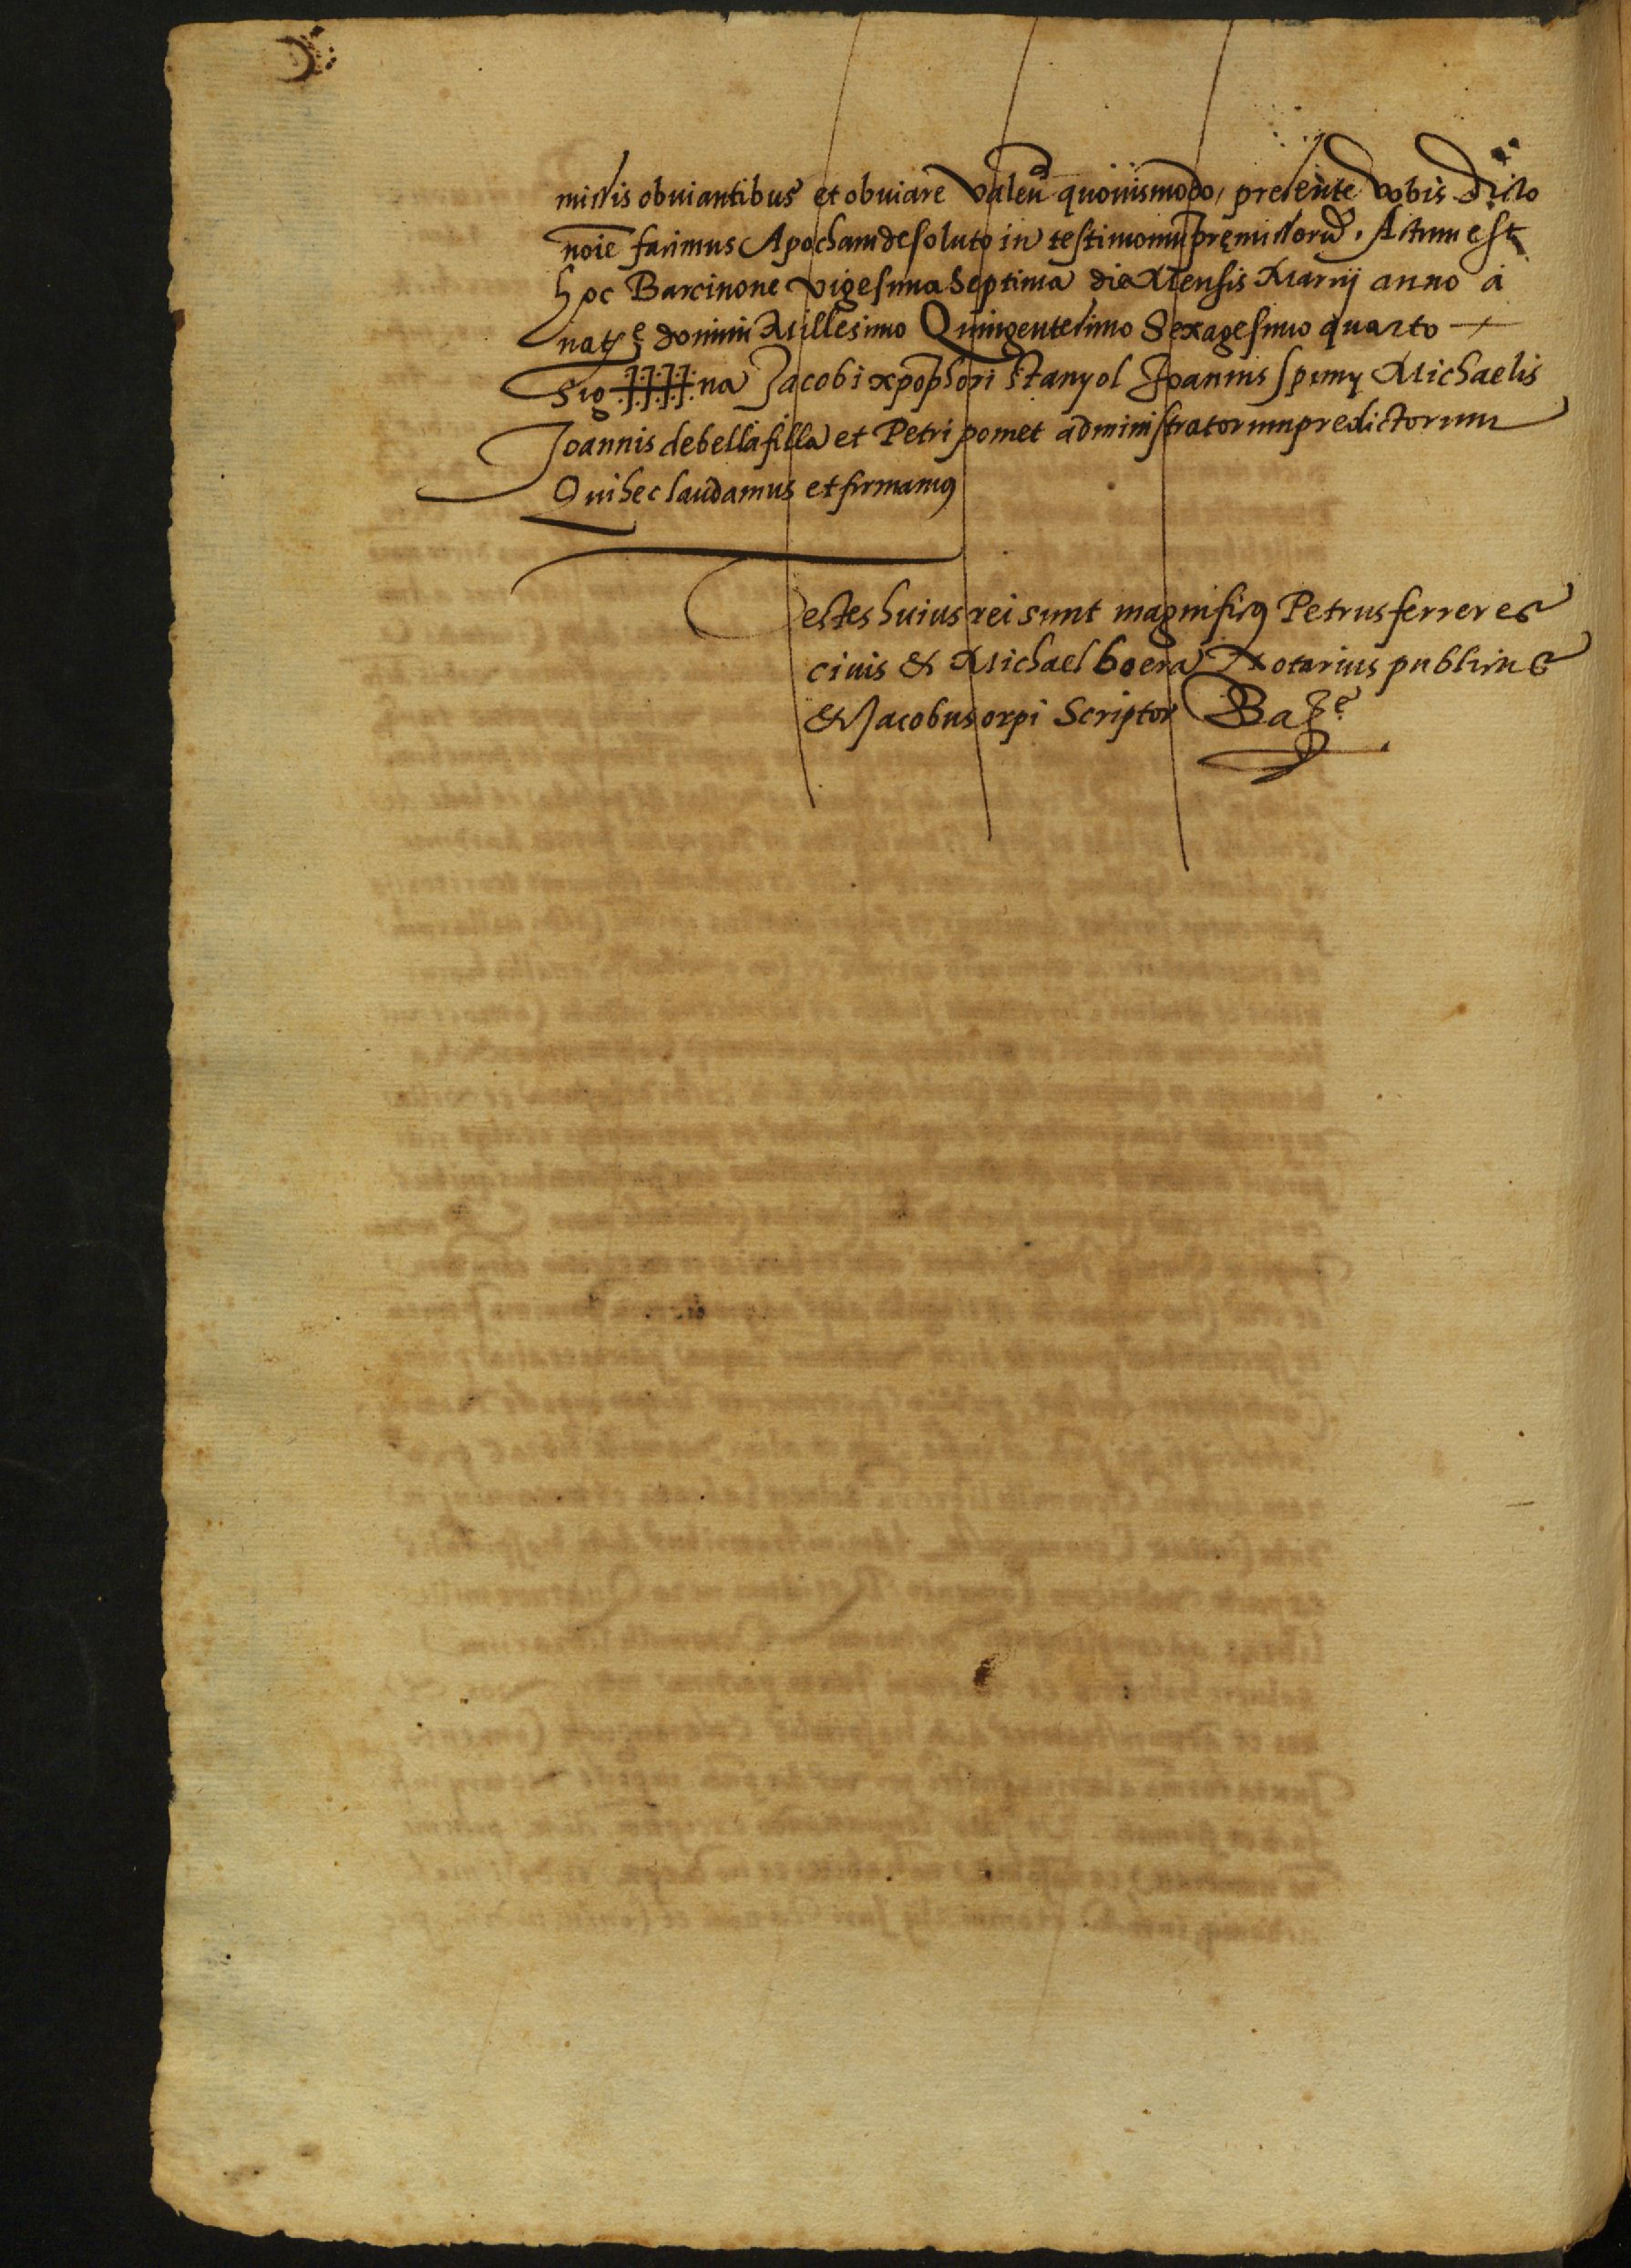 missis obviantibus et obviare valeñ quovismodo, presente vobis dicto
noie facimus Apocham de soluto in testimoniũ premissorũ. Actum est
hoc Barcinone vigesima Septima die Mensis Marcij anno à
natᵉ domini Millesimo Quingentesimo Sexagesimo quarto
Sig ++++ na Jacobi xpophori stanyol Joannis spuny Michaelis
Joannis de bellafilla et Petri pomet administratorum predictorum
Qui hec laudamus et firmamus
Testes huius rei sunt magnificus Petrus ferreres
civis & Michael boera Notarius publicus
& Jacobus orpi Scriptor Baᵉ